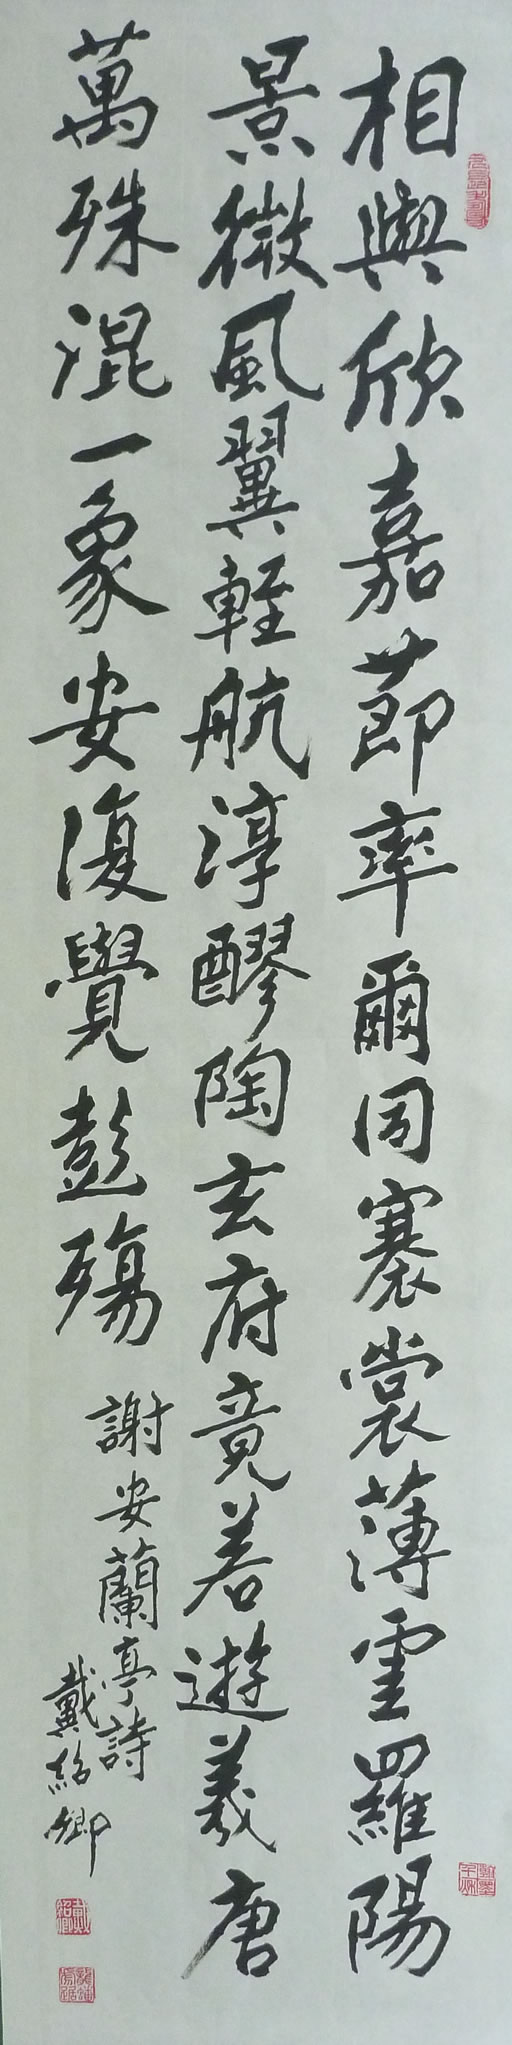 相與欣嘉莭率爾同褰裳薄雲羅陽
景微風翼輕航淳醪陶玄府竟若遊羲唐
萬殊混一象安復覺彭殤
謝安蘭亭詩
戴紹卿